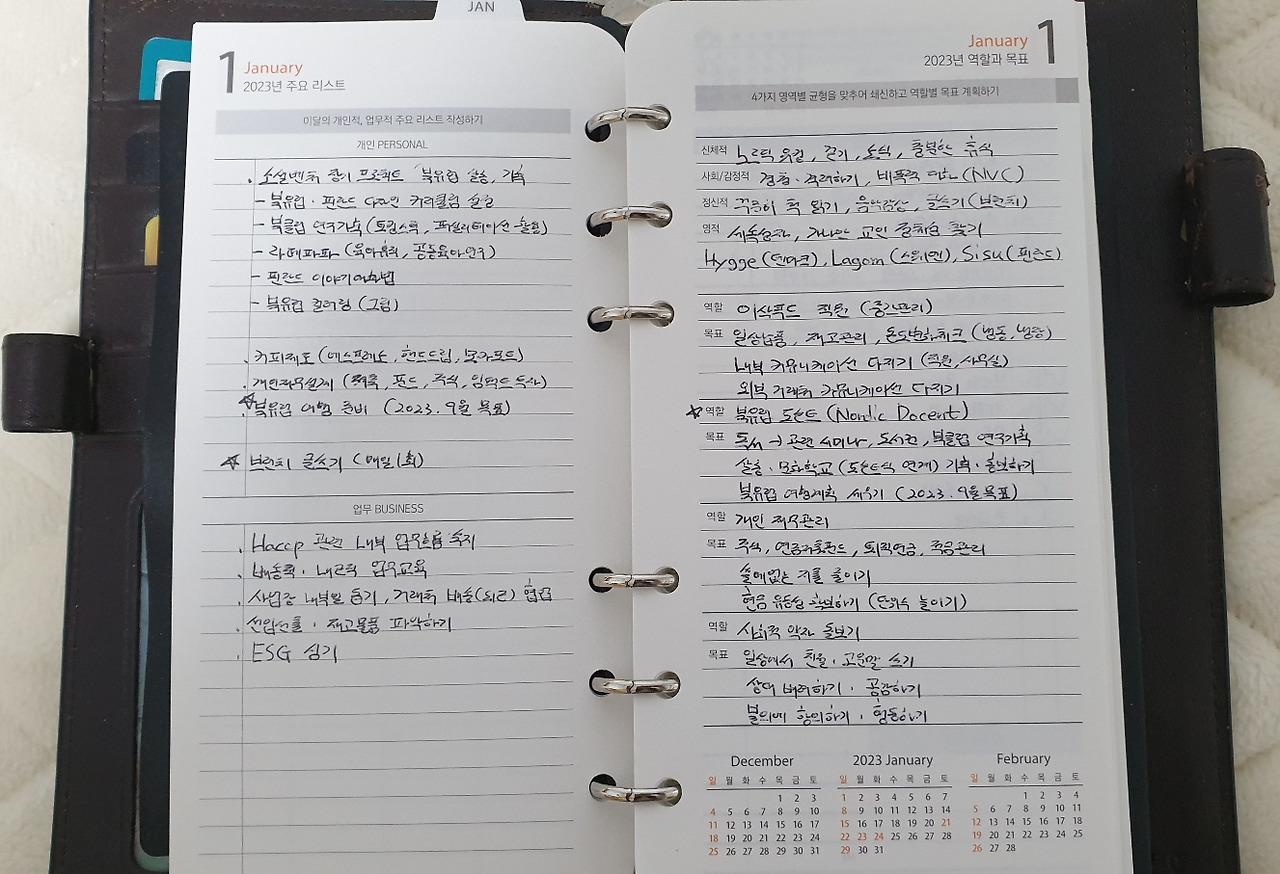 JAN
1 January
2023년 주요 리스트
이달의 개인적, 업무적 주요 리스트 작성하기
개인 PERSONAL
. 소셜벤처 창기 프로젝트 북유럽 살롱, 기획
- 북유럽 · 핀란드 다자인 커리큘럼 설정
- 북클럽 연구기획 (토킹스틱, 퍼실리테이션 활용)
- 라떼파파 (육아휴직, 공동육아연구)
- 핀란드 이야기대화법
- 북유럽 컬러링 (그림)
. 커피제조 (에스프레소, 핸드드립, 모카포트)
. 개인재무설계 (저축, 펀드, 주식, 임팩트투자)
☆ 북유럽 여행 준비 (2023. 9월 목표)
☆ 브런치 글쓰기 (매일 1회)
업무 BUSINESS
. Haccp 관련 내부 업무흐름 숙지
. 배송력 · 내근직 업무교육
. 사업장 내부일 돕기, 거래처 배송(외근) 협업
. 선입선출 · 재고물품 파악하기
. ESG 심기
January 1
2023년 역할과 목표
4가지 영역별 균형을 맞추어 쇄신하고 역할별 목표 계획하기
신체적 노르딕 워킹, 걷기, 소식, 충분한 휴식
사회/감정적 경청 · 격려하기, 비폭력 대화 (NVC)
정신적 꾸준히 책 읽기, 음악감상, 글쓰기 (브런치)
영적 세속성자, 가나안 교인 정체성 찾기
Hygge (덴마크), Lagom (스웨덴), Sisu (핀란드)
역할 이산푸드 직원 (중간관리)
목표 일상납품, 재고관리, 온도변화체크 (냉동, 냉장)
내부 커뮤니케이션 다지기 (직원, 사무실)
외부 거래처 커뮤니케이션 다지기
☆ 역할 북유럽 도슨트 (Nordic Docent)
목표 독서 → 관련 세미나, 도서전, 북클럽 연구기획
살롱 · 문화학교 (도슨트식 연계) 기획 · 홍보하기
북유럽 여행계획 세우기 (2023. 9월 목표)
역할 개인 재무관리
목표 주식, 연금저축펀드, 퇴직연금, 적금관리
쓸데없는 지출 줄이기
현금 유동성 확보하기 (단위수 높이기)
역할 사회적 약자 돌보기
목표 일상에서 친절 · 고운말 쓰기
상대 배려하기 · 공감하기
불의에 항의하기 · 협동하기
December 2023 January February
일 월 화 수 목 금 토 일 월 화 수 목 금 토 일 월 화 수 목 금 토
1 2 3 1 2 3 4 5 6 7 1 2 3 4
4 5 6 7 8 9 10 8 9 10 11 12 13 14 5 6 7 8 9 10 11
11 12 13 14 15 16 17 15 16 17 18 19 20 21 12 13 14 15 16 17 18
18 19 20 21 22 23 24 22 23 24 25 26 27 28 19 20 21 22 23 24 25
25 26 27 28 29 30 31 29 30 31 26 27 28